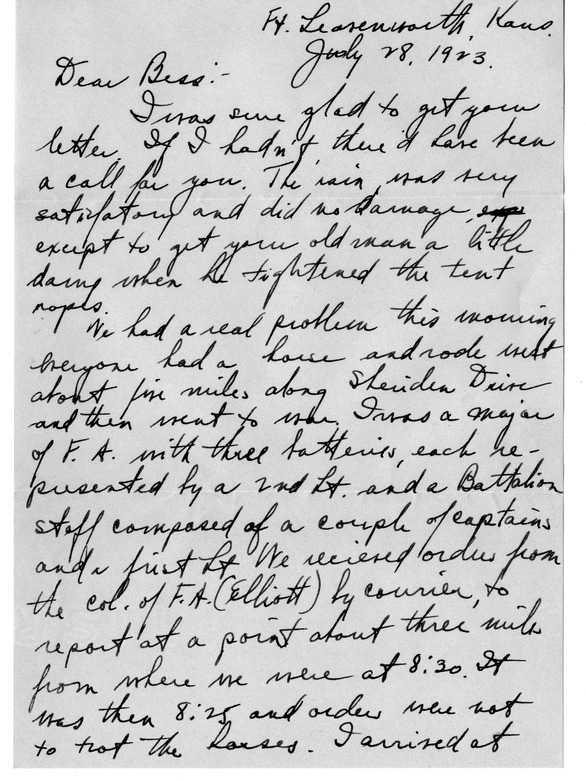 Ft. Leavenworth, Kans.
July 28, 1923.
Dear Bess:-
I was sure glad to get your
letter. If I hadn't, there'd have been
a call for you. The rain was very
satisfatory and did no damage,
except to get your old man a little
damp when he tightened the tent
ropes.
We had a real problem this morning
everyone had a horse and rode west
about five miles along Sheriden Drive
and then went to war. I was a major
of F. A. with three batteries, each re-
presented by a 2nd Lt. and a Battalion
staff composed of a couple of captains
and a first Lt We recieved orders from
the col. of F.A. (Elliott) by courier, to
report at a point about three miles
from where we were at 8:30. It
was then 8:25 and orders were not
to trot the horses. I arrived at